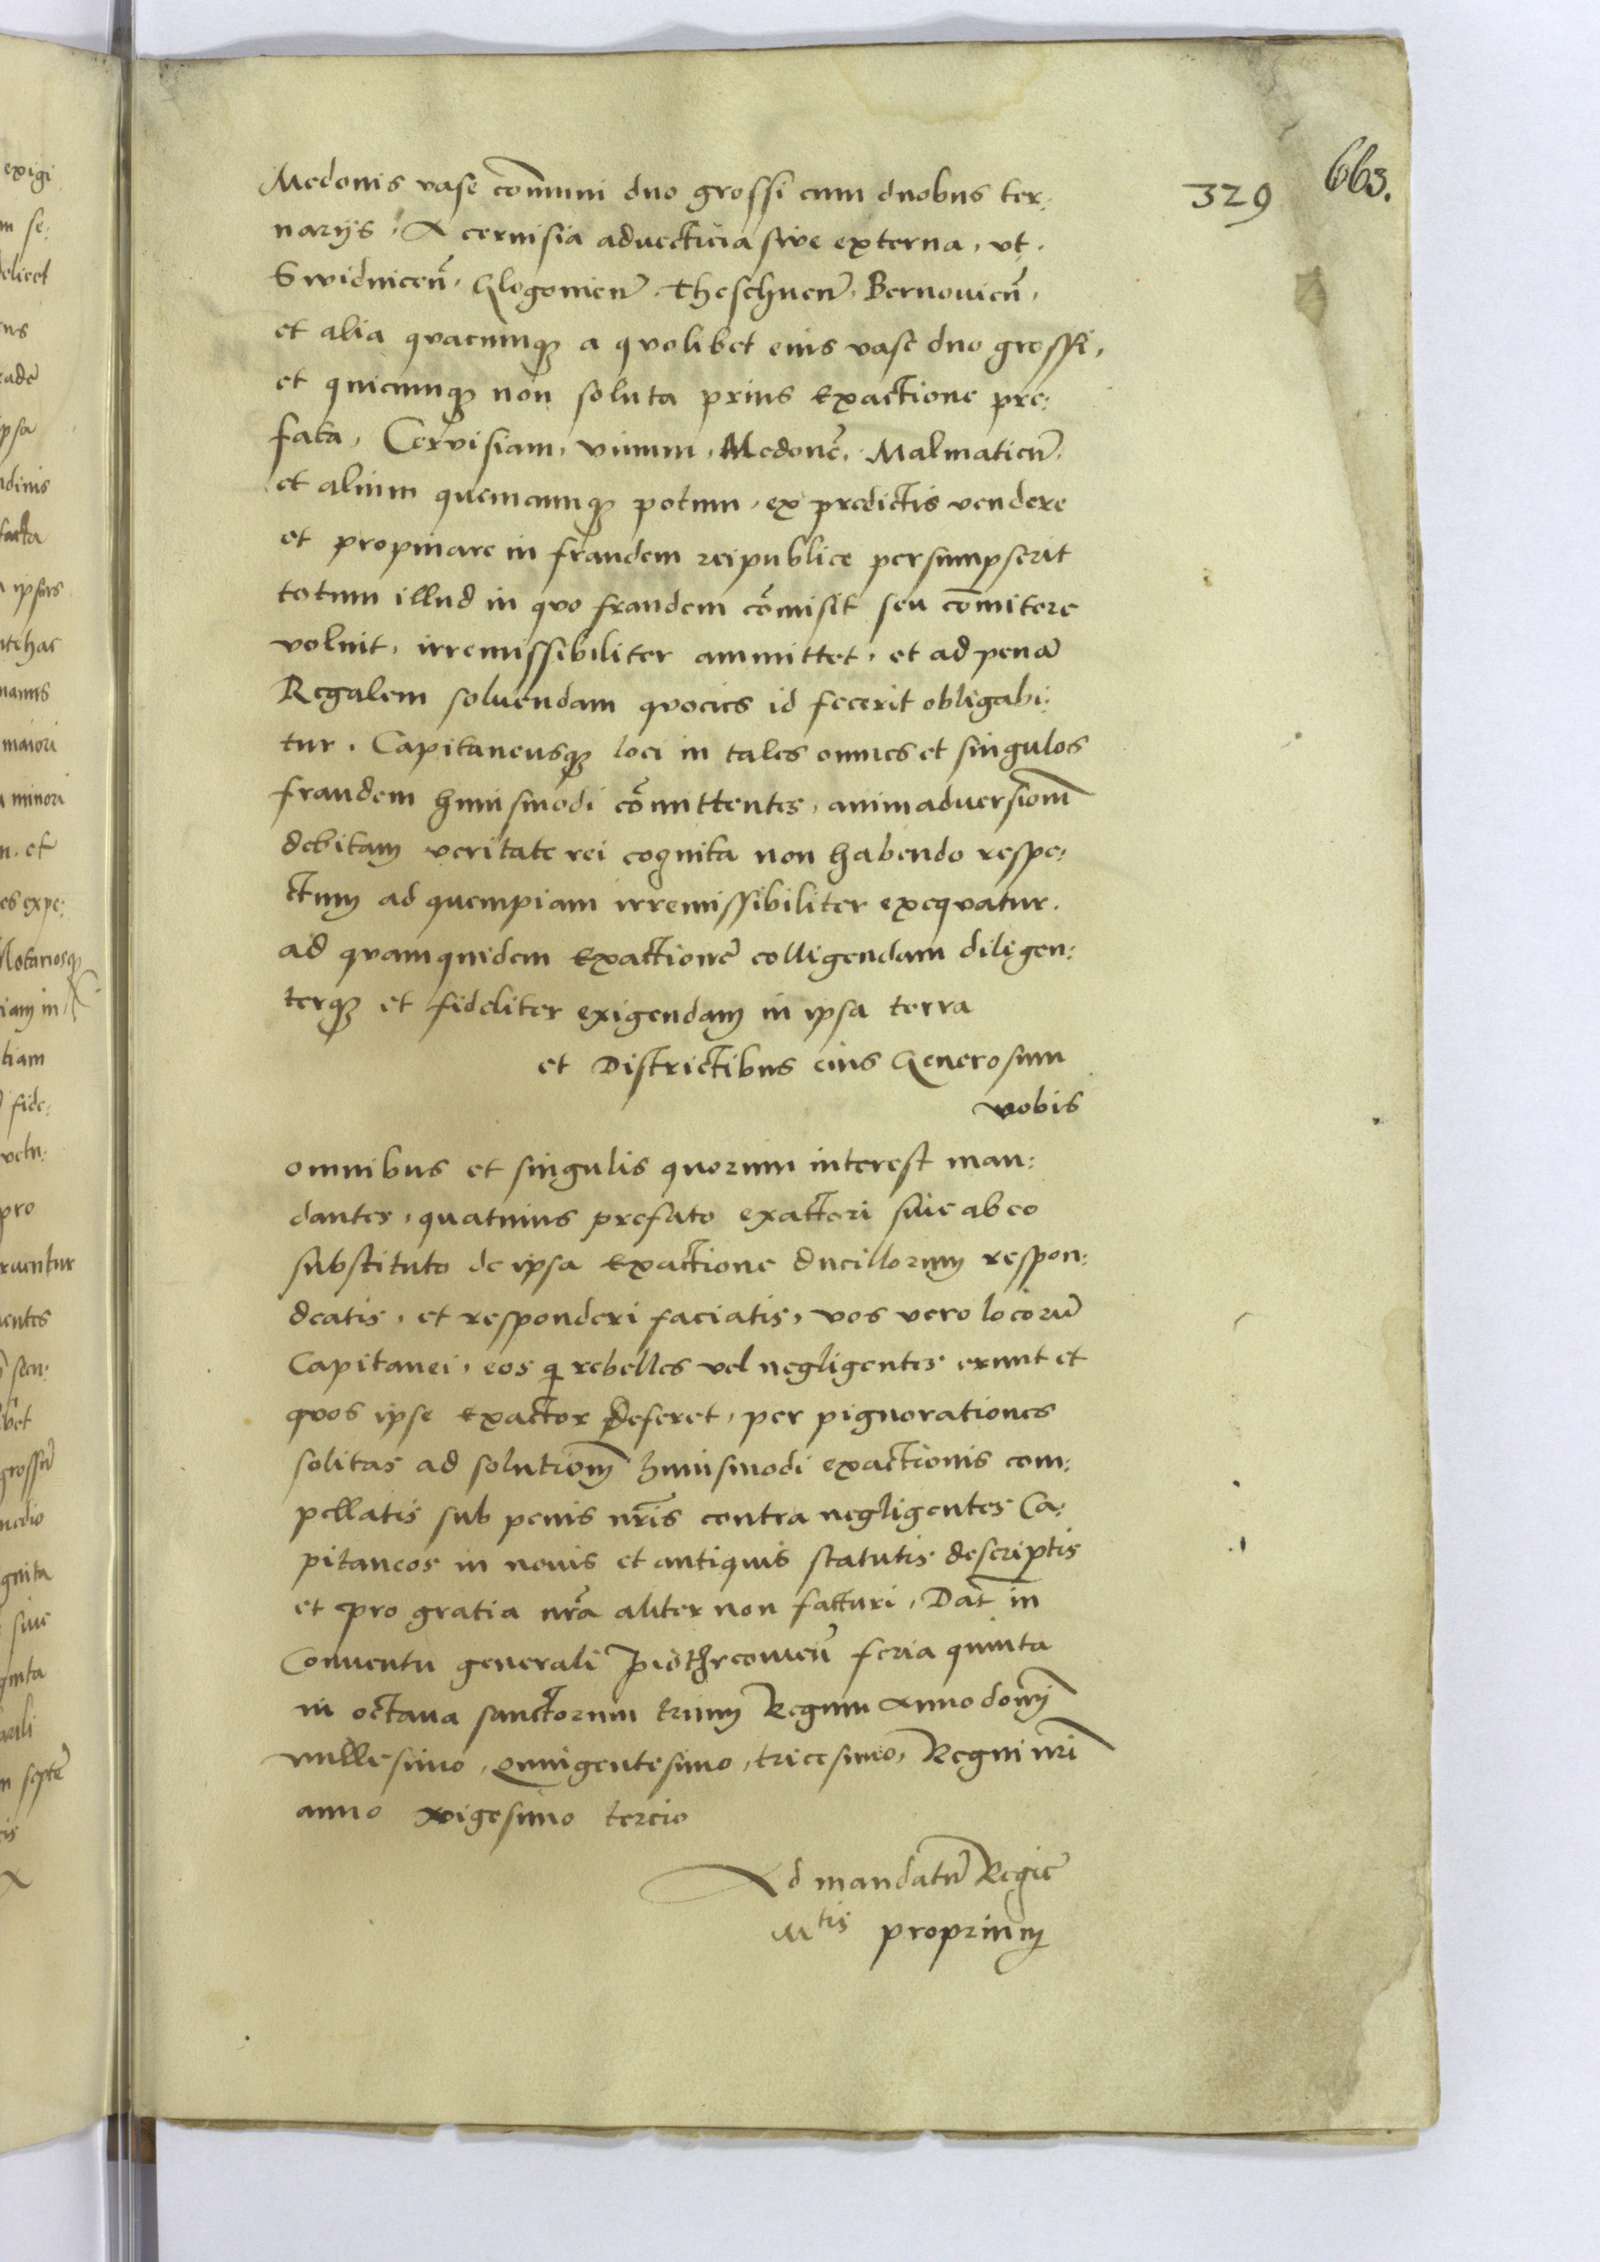 329
663.
Medonis vase cõmuni duo grossi cum duobus ter:
narijs. A cervisia advecticia sive externa, vt.
Swidniceñ. Glogovieñ. Theschneñ. Bernovieñ.
et alia quacunq3 a quolibet eius vase duo grossi,
et quicunq3 non soluta prius Exactione pre:
fata, Cervisiam, vinum, Medonẽ, Malmaticũ,
et alium quemcumq3 potum, ex predictis vendere
et propinare in fraudem reipublice persumpserit
totum illud in quo fraudem cõmisit seu cõmitere
voluit, irremissibiliter ammittet, et ad penã
Regalem soluendam quocies id fecerit obligabi:
tur. Capitaneusq3 loci in tales omnes et singulos
fraudem huiusmodi cõmittentes, animadversionẽ
debitam veritate rei cognita non habendo respe:
ctum ad quempiam irremissibiliter exequatur.
ad quamquidem Exactionẽ colligendam diligen:
terq3 et fideliter exigendam in ipsa terra
et Districtibus eius Generosum
vobis
omnibus et singulis quorum interest man:
dantes, quatinus prefato exactori siue ab eo
substituto de ipsa Exactione ducillorum respon:
deatis, et responderi faciatis, vos vero locorũ
Capitanei, eos q̃ rebelles vel negligentes erunt et
quos ipse Exactor deferet, per pignorationes
solitas ad solutionẽ huiusmodi exactionis com:
pellatis sub penis nr̃is contra negligentes Ca:
pitaneos in novis et antiquis statutis descriptis
et pro gratia nr̃a aliter non facturi, Dat̃ in
Conventu generali Piothrcovieñ feria quinta
in octava sanctorum trium Regum Anno domĩ
millesimo, quingentesimo, tricesimo, Regni nr̃i
anno vigesimo tercio
Ad mandatũ Regiẽ
Mtis proprium